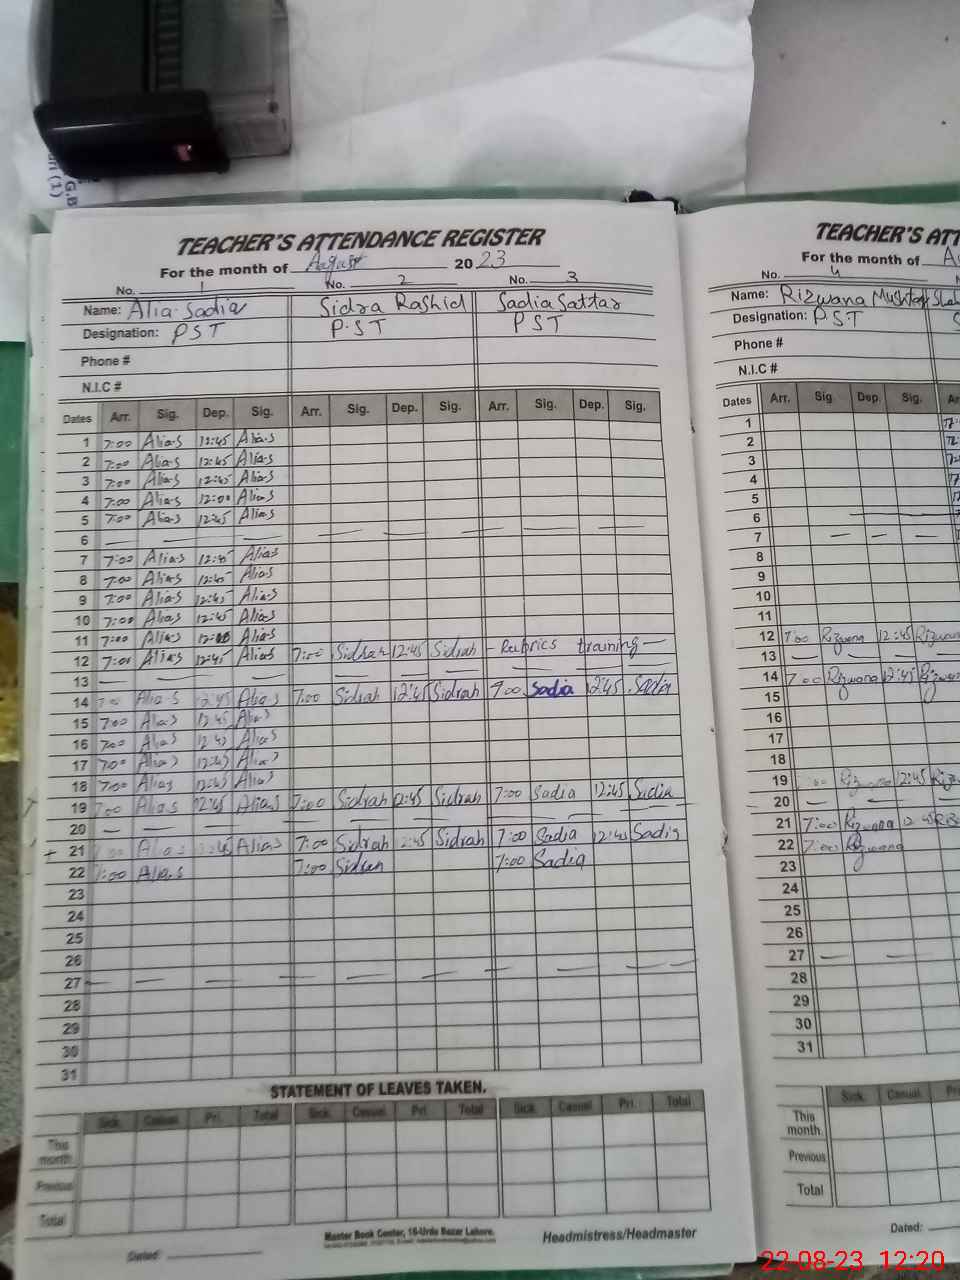 TEACHER'S ATTENDANCE REGISTER
For the month of August 2023
No. 1 No. 2 No. 3
Name: Alia Sadia Sidra Rashid Sadia Sattar
Designation: PST P.ST PST
Phone #
N.I.C #
Dates Arr. Sig. Dep. Sig. Arr. Sig. Dep. Sig. Arr. Sig. Dep. Sig.
1 7:00 Alia.S 12:45 Alia.S
2 7:00 Alia.S 12:45 Alia.S
3 7:00 Alia.S 12:45 Alia.S
4 7:00 Alia.S 12:00 Alia.S
5 7:00 Alia.S 12:45 Alia.S
6
7 7:00 Alia.S 12:45 Alia.S
8 7:00 Alia.S 12:45 Alia.S
9 7:00 Alia.S 12:45 Alia.S
10 7:00 Alia.S 12:45 Alia.S
11 7:00 Alia.S Alia.S
12 7:00 Alia.S 12:45 Alia.S 7:00 Sidrah 12:45 Sidrah - Rubrics training -
13
14 Alia.S 12:45 Alia.S 7:00 Sidrah 12:45 Sidrah 7:00 Sadia 12:45 Sadia
15 7:00 Alia.S 12:45 Alia.S
16 7:00 Alia.S 12:45 Alia.S
17 7:00 Alia.S 12:45 Alia.S
18 7:00 Alia.S 12:45 Alia.S
19 7:00 Alia.S 12:45 Alia.S 7:00 Sidrah 12:45 Sidrah 7:00 Sadia 12:45 Sadia
20
21 Alia.S Alia.S 7:00 Sidrah 12:45 Sidrah 7:00 Sadia 12:45 Sadia
22 7:00 Alia.S 7:00 Sidrah 7:00 Sadia
23
24
25
26
27
28
29
30
31
STATEMENT OF LEAVES TAKEN.
Sick Casual Pri. Total Sick Casual Pri. Total Sick Casual Pri. Total
This month
Previous
Total
Master Book Center, 16-Urdu Bazar Lahore.
Dated: Headmistress/Headmaster
TEACHER'S ATT
For the month of
No. 4
Name: Rizwana Mushtaq
Designation: PST
Phone #
N.I.C #
Dates Arr. Sig. Dep. Sig.
1
2
3
4
5
6
7
8
9
10
11
12 7:00 Rizwana 12:45 Rizwana
13
14 7:00 Rizwana 12:45
15
16
17
18
19 12:45
20
21 7:00 Rizwana 12:45
22 7:00 Rizwana
23
24
25
26
27
28
29
30
31
Sick Casual
This month
Previous
Total
Dated:
G.B
(1)
22-08-23 12:20